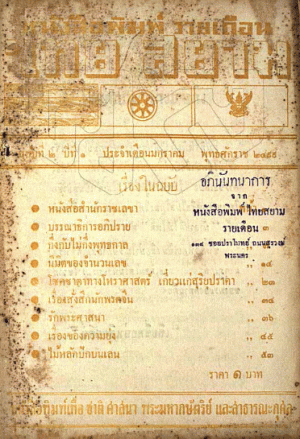 หนังสือพิมพ์ รายเดือน
ไทย สยาม
ที่ ๒ ปีที่ ๑ ประจำเดือนมกราคม พุทธศักราช
เรื่องในฉบับ
อภินันทนาการ
จาก
หนังสือพิมพ์ไทยสยาม
รายเดือน
ซอยปราโมทย์ ถนนสุรวงศ์
พระนคร
หนังสือสำนักราชเลขา
บรรณาธิการอภิปราย ๓
กึ่งกับไม่กึ่งพุทธกาล
นิมิตของจำนวนเลข ๑๔
โชคชะตาทางโหราศาสตร์ เกี่ยวแก่สุริยปราคา ๒๓
เรื่อง ๓๔
รักพระศาสนา ๓๖
เรื่องของความยุ่ง ๔๕
ไม้หลักปักบนเลน ๕๓
ราคา ๑ บาท
หนังสือพิมพ์เพื่อ ชาติ ศาสนา พระมหากษัตริย์ และสาธารณะกุศล